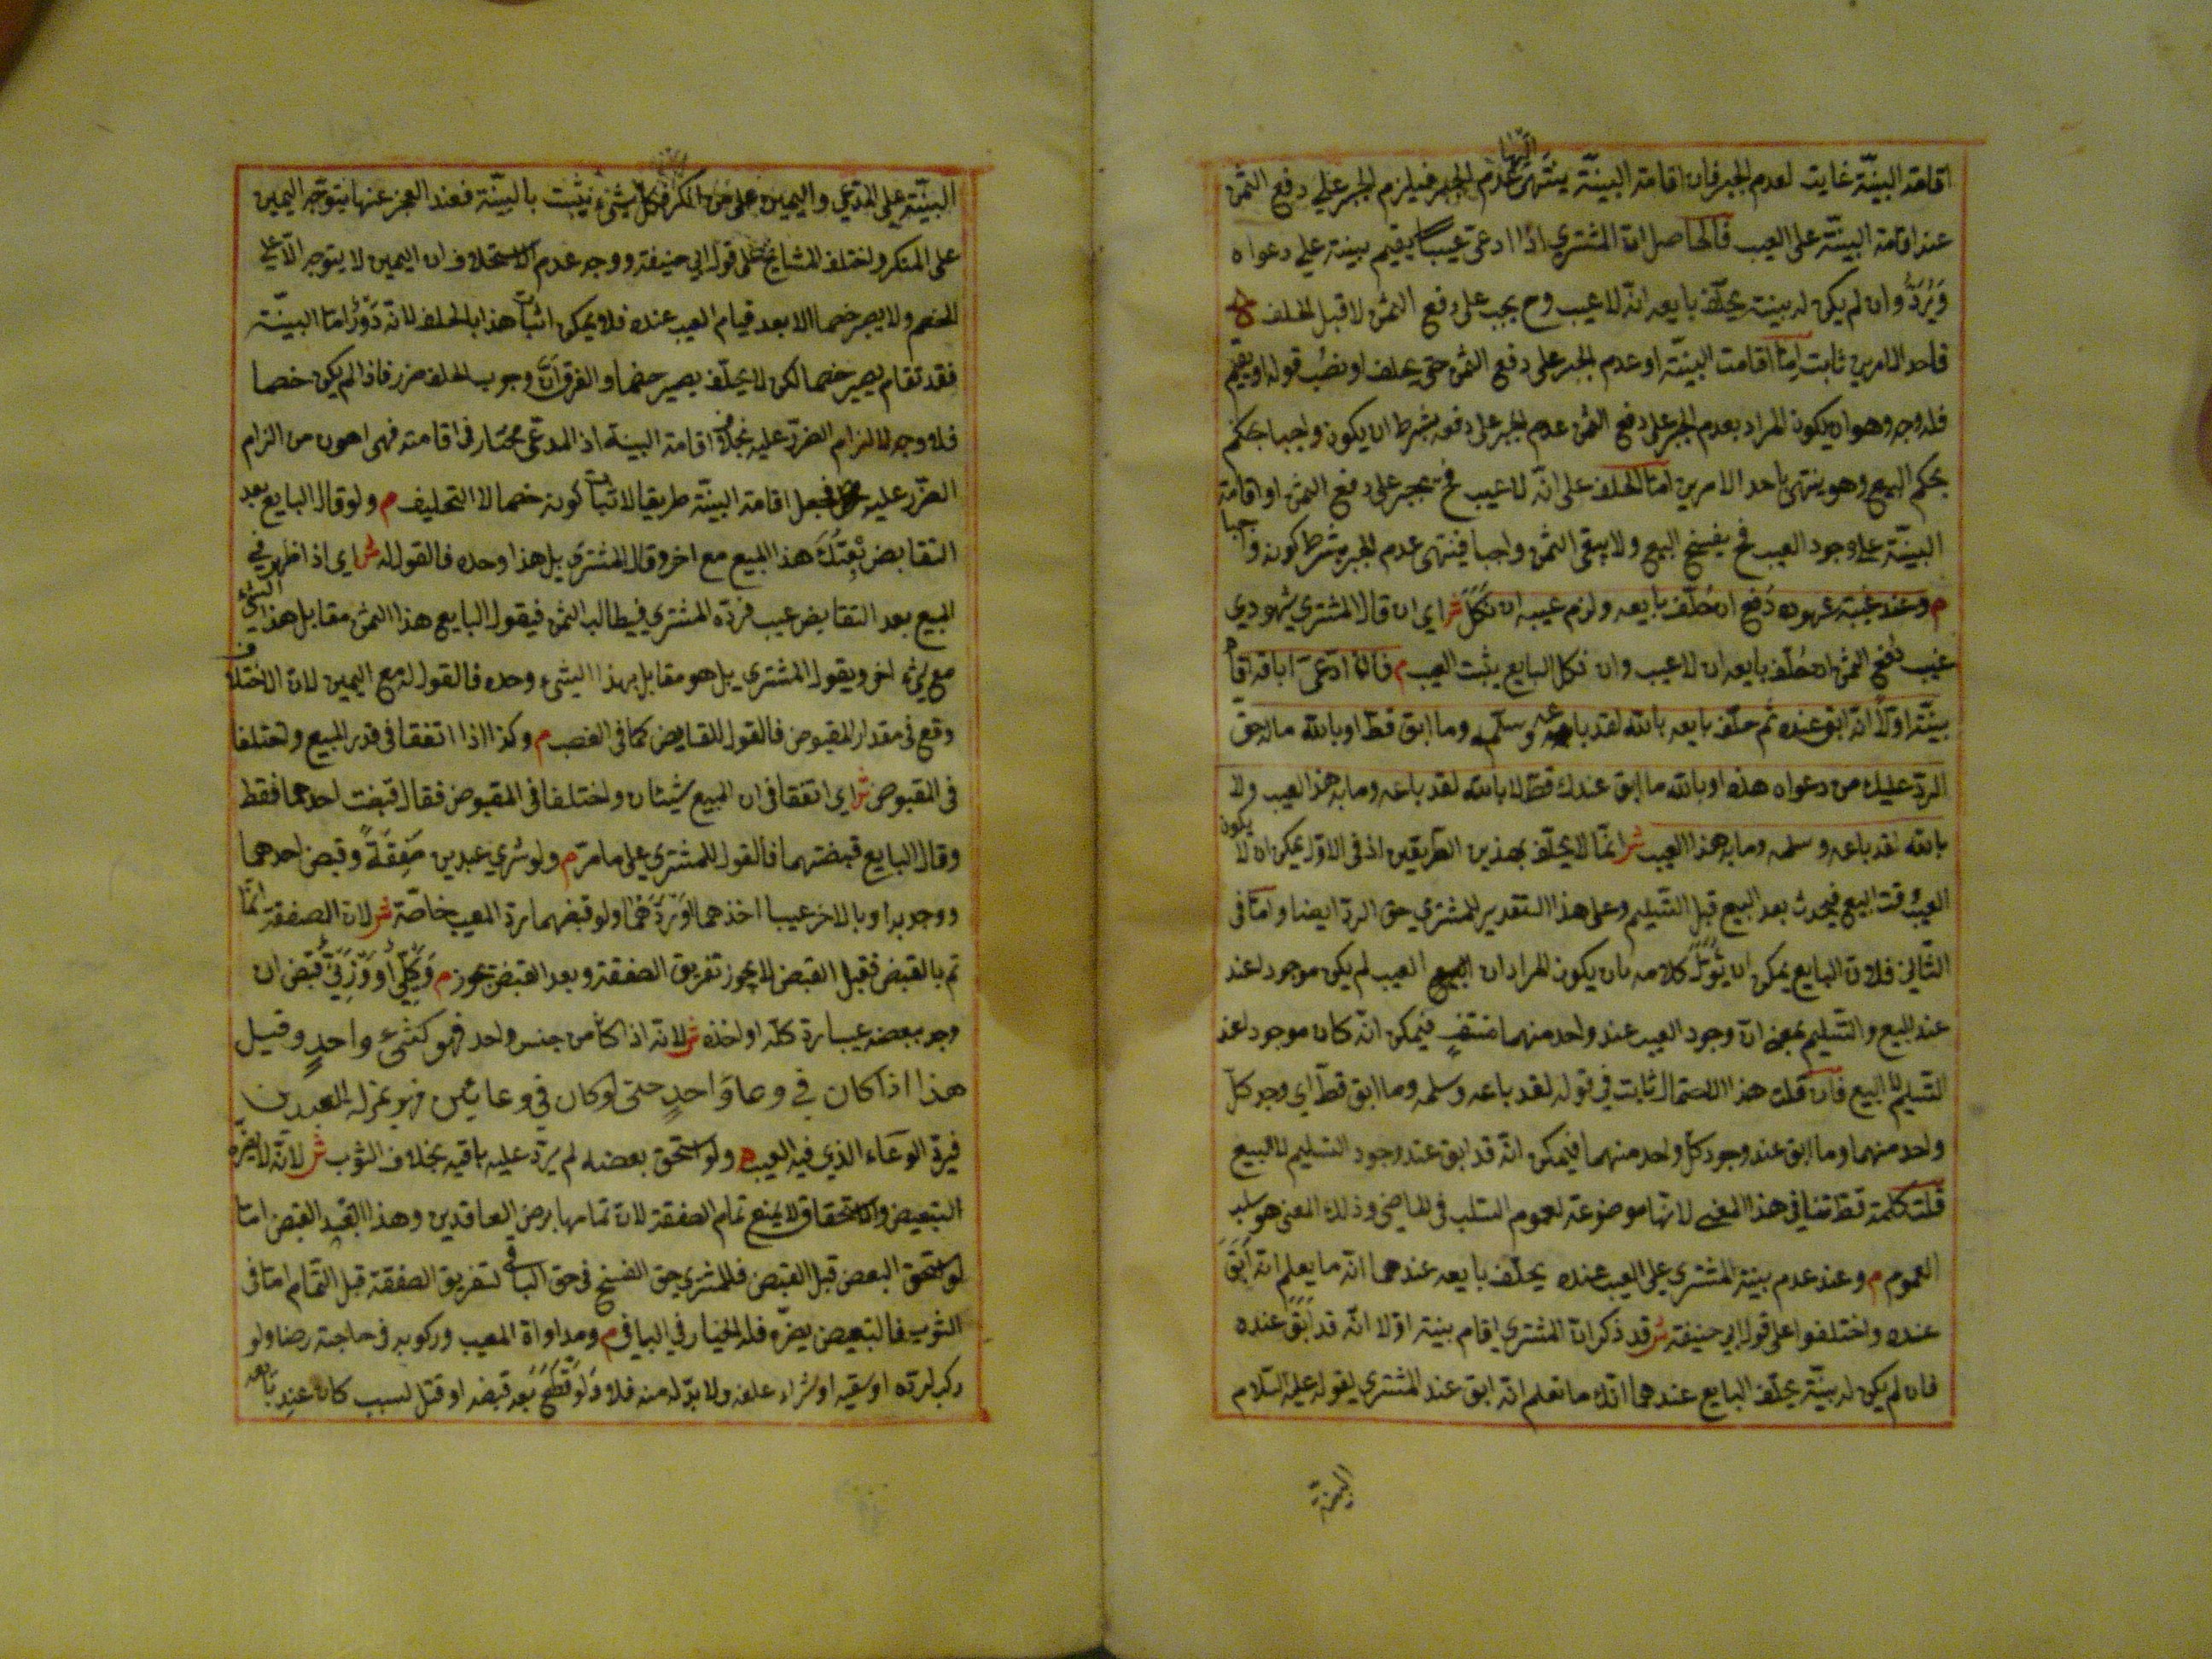 اقامة البينة غاية لعدم الجبر فان اقامة البينة ينتهى عدم الجبر فيلزم الجبر على دفع الثمن
اليها
عند اقامة البينة على العيب فالحاصل ان المشترى اذا ادعى عيبا يقيم بينة على دعواه
وَيُرَدُّ وان لم يكن له بينة يحلّف بايعه انّه لا عيب وح يجب على دفع الثمن لا قبل الحلف
فاحد الامرين ثابت اِمّا اقامت البينّة او عدم الجبر على دفع الثمن حتى يحلف
فله وجه وهو ان يكون المراد بعدم الجبر على دفع الثمن عدم الجبر على دفعه بشرط ان يكون واجبا بحكم
بحكم البيع وهو ينتهى باحد الامرين امّا الحلف على انّه لا عيب فح يجبر على دفع الثمن او اقامة
البينّة على وجود العيب فح يفسخ البيع ولا يبقى الثمن واجبا فينتهى عدم الجبر بشرط كونه واجبا
م وعند غيبة شهوده دُفع ان حُلّف بايعه ولزم عيبه ان نَكَلَ ش اى ان قال المشترى شهودى
غيب دفع الثمن ان حُلّف بايعه ان لا عيب وان نكل البايع يثبت العيب م فان ادّعى اباقه اقام
بيّنة اولًا انّه ابق عنده ثم حلّف بايعه بالله لقد باعه وسلّمه وما ابق قطّ او بالله ما له حق
الردّ عليك من دعواه هذه او بالله ما ابق عندك قطّ لا بالله لقد باعه وما به هذا العيب ولا
بالله لقد باعه وسلمه وما به هذا العيب ش انّما لا يحلّف بهذين الطريقين اذ فى الاوّل يمكن ان لا يكون
العيب وقت البيع فيحدث بعد البيع قبل التسليم وعلى هذا التقدير للمشترى حق الردّ ايضا وامّا فى
الثّانى فلانّ البايع يمكن ان يُؤَوِّل كلامه بان يكون المراد ان العيب لم يكن موجود عند
عند البيع والتسليم بمعنى انّ وجود العيب عند واحد منهما منتفٍ فيمكن انّه كان موجودا عند
التسليم لا البيع فان قلت هذا الاحتمال ثابت فى قوله لقد باعه وسلمه وما ابق قطّ اى وجد كلّ
واحد منهما وما ابق عند وجود كلّ واحد منهما فيمكن انّه قد ابق عند وجود التسليم لا البيع
قلت كلمة قطّ تنافى هذا المعنى لانّها موضوعة لعموم السلب فى الماضى وذلك المعنى هو سلب
العموم م وعند عدم بينة المشترى على العيب عنده يحلّف بايعه عندهما انّه ما يعلم انّه اَبَقَ
عنده واختلفوا على قول ابى حنيفة ش قد ذكر انّ المشترى اقام بينة اوّلا انّه قد اَبَقَ عنده
فان لم يكن له بيّنة يحلّف البايع عندهما انّك ما تعلم انّه ابق عند المشترى لقوله عليه السّلام
البينة
البيّنة على المدّعى واليمين على من انكر فكلّ شئ يثبت بالبيّنة فعند العجز عنها يتوجّه اليمين
على المنكر واختلف المشايخ على قول ابى حنيفة ووجه عدم الاستحلاف ان اليمين لا يتوجه الّا على
الخصم ولا يصير خصما الا بعد قيام العيب عنده فلا يمكن اثبات هذا بالحلف لانّه دَوْرٌ امّا البيّنة
فقد تقام يصير خصما لكن لا يحلّف يصير خصما والفرق انّ وجوب الحلف ضرر فاذا لم يكن خصما
فلا وجه لالزام الضرر عليه بخلاف اقامة البينة اذ المدّعى مختار فى اقامته فهى اهون من الزام
الضرر عليه فجعل اقامة البيّنة طريقا لاثبات كونه خصما لا التحليف م ولو قال البايع بعد
التقابض بِعْتُكَ هذا المبيع مع اخر وقال المشترى بل هذا وحده فالقول له ش اى اذا ظهر فى
المبيع بعد التقابض عيب فردّه المشترى فيطالب الثمن فيقول البايع هذا الثمن مقابل هذا الشئ
مع شئ اخر ويقول المشترى بل هو مقابل بهذا الشئ وحده فالقول له مع اليمين لان الاختلاف
وقع فى مقدار المقبوض فالقول للقابض كما فى الغصب م وكذا اذا اتفقا فى قدر المبيع واختلفا
فى المقبوض ش اى اتفقا فى ان المبيع شيئان واختلفا فى المقبوض فقال قبضت احدهما فقط
وقال البايع قبضتهما فالقول للمشترى على ما مرّ م ولو شرى عبدين صَفْقَةً وقبض احدهما
ووجد به او بالاخر عيبا اخذهما او ردّهما ولو قبضهما ردّ المعيب خاصّة ش لان الصفقة انّما
تم بالقبض فقبل القبض لا يجوز تفريق الصفقة وبعد القبض يجوز م وَكَيْلِىٌّ او وَزْنِىٌّ قُبِضَ ان
وجد ببعضه عيبا ردّ كلّه او اخذه ش لانّه اذا كان من جنس واحد فهو كشئ واحدٍ وقيل
هذا اذا كان فى وعاءٍ واحدٍ حتى لو كان فى وعائين فهو بمنزلة العبدين
فيردّ الوعاء الذى فيه العيب م ولو استحق بعضه لم يردّ عليه باقيه بخلاف الثوب ش لانّه لا يضرّه
التبعيض والاستحقاق لا يمنع تمام الصفقة لان تمامها برضى العاقدين وهذا بعد القبض امّا
لو استحق البعض قبل القبض فللمشترى حق الفسخ فى حق الباقى لتفريق الصفقة قبل التّمام امّا فى
الثوب فالتبعيض يضرّه فله الخيار فى الباقى م ومداواة المعيب وركوبه فى حاجته رضا ولو
ركبه لردّه او سقيه او شراء علفه ولا بدّ له منه فلا ولو قُطِعَ بعد قبضه او قتل لسبب كان عند بايعه